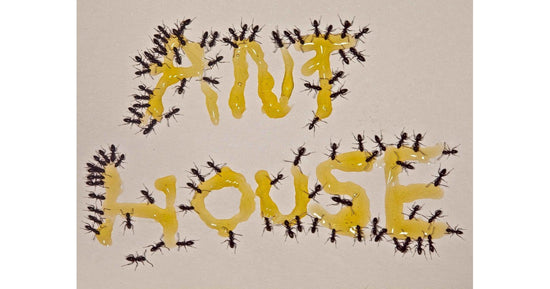 ANT
HOUSE